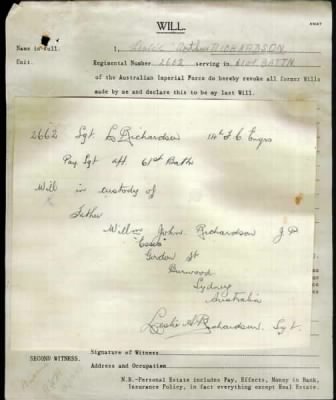 WILL.
Name in Full. I, Leslie Arthur RICHARDSON
Unit. Regimental Number 2662 serving in 61st. BATTN.
of the Australian Imperial Force do hereby revoke all former Wills
made by me and declare this to be my last Will.
2662 Sgt L Richardson 14th F.C. Engrs
Pay Sgt att 61st Battn
Will in custody of
Father
Willm John Richardson J.P
"Essex"
Gordon St
Burwood
Sydney
Australia
Leslie A Richardson. Sgt.
Signature of Witness
SECOND WITNESS.
Address and Occupation.
N.B.-Personal Estate includes Pay, Effects, Money in Bank,
Insurance Policy, in fact everything except Real Estate.